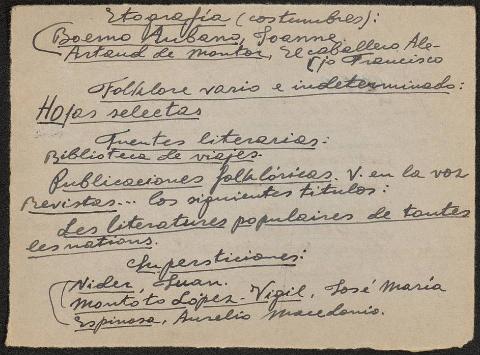 Etografía (costumbres):
Boemo Aubano, Joanne.
Artaud de Montor, El caballero Ale-
jo Francisco
Folklore vario e indeterminado:
Hojas selectas
Fuentes literarias:
Biblioteca de viajes.
Publicaciones folklóricas. V. en la voz
Revistas... los siguientes titulos:
Les literatures populaires de toutes
les nations.
Supersticiones:
Nider, Juan.
Montoto López-Vigil, José María
Espinosa, Aurelio Macedonio.